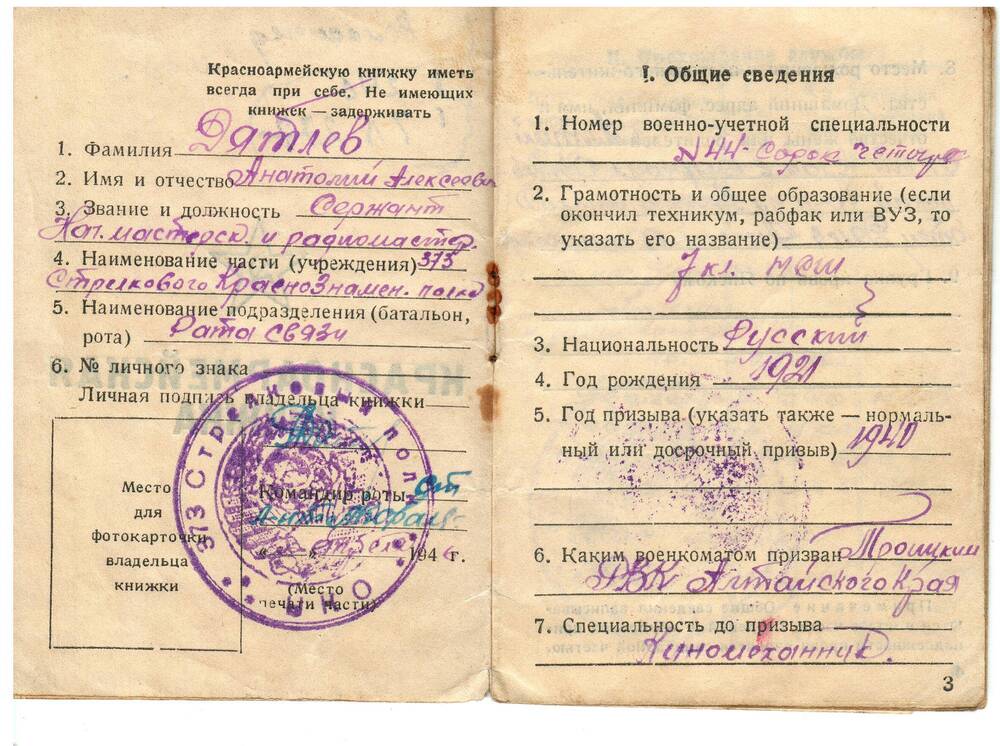 Красноармейскую книжку иметь
всегда при себе. Не имеющих
книжек — задерживать
1. Фамилия Дятлев
2. Имя и отчество Анатолий Алексеевич
3. Звание и должность Сержант
Нач. мастерск. и радиомастер.
4. Наименование части (учреждения) 373
Стрелкового КрасноЗнамен. полка
5. Наименование подразделения (батальон,
рота) Рота связи
6. № личного знака
Личная подпись владельца книжки
Место
для
фотокарточки
владельца
книжки
Командир роты ст
л-нт
„ “ 194 г.
(Место
печати части)
373 Стрелковый полк
I. Общие сведения
1. Номер военно-учетной специальности
N 44 - Сорок четыре
2. Грамотность и общее образование (если
окончил техникум, рабфак или ВУЗ, то
указать его название)
7 кл. НСШ
3. Национальность Русский
4. Год рождения 1921
5. Год призыва (указать также — нормаль-
ный или досрочный призыв) 1940
6. Каким военкоматом призван Троицким
РВК Алтайского Края
7. Специальность до призыва
Киномеханник.
3